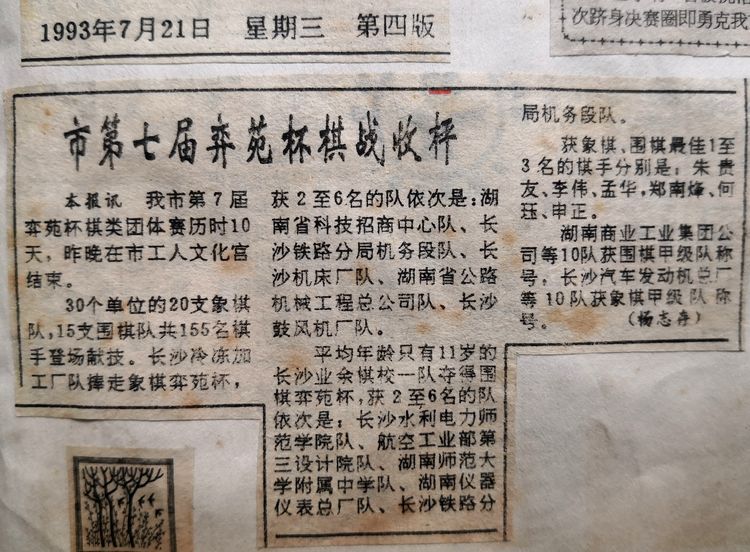 1993年7月21日 星期三 第四版
次跻身决赛圈即勇克我
市第七届弈苑杯棋战收枰
本报讯 我市第7届
弈苑杯棋类团体赛历时10
天，昨晚在市工人文化宫
结束。
30个单位的20支象棋
队，15支围棋队共155名棋
手登场献技。长沙冷冻加
工厂队捧走象棋弈苑杯，
获2至6名的队依次是：湖
南省科技招商中心队、长
沙铁路分局机务段队、长
沙机床厂队、湖南省公路
机械工程总公司队、长沙
鼓风机厂队。
平均年龄只有11岁的
长沙业余棋校一队夺得围
棋弈苑杯，获2至6名的队
依次是：长沙水利电力师
范学院队、航空工业部第
三设计院队、湖南师范大
学附属中学队、湖南仪器
仪表总厂队、长沙铁路分
局机务段队。
获象棋、围棋最佳1至
3名的棋手分别是：朱贵
友、李伟、孟华，郑南烽、何
珏、申正。
湖南商业工业集团公
司等10队获围棋甲级队称
号，长沙汽车发动机总厂
等10队获象棋甲级队称
号。 （杨志存）